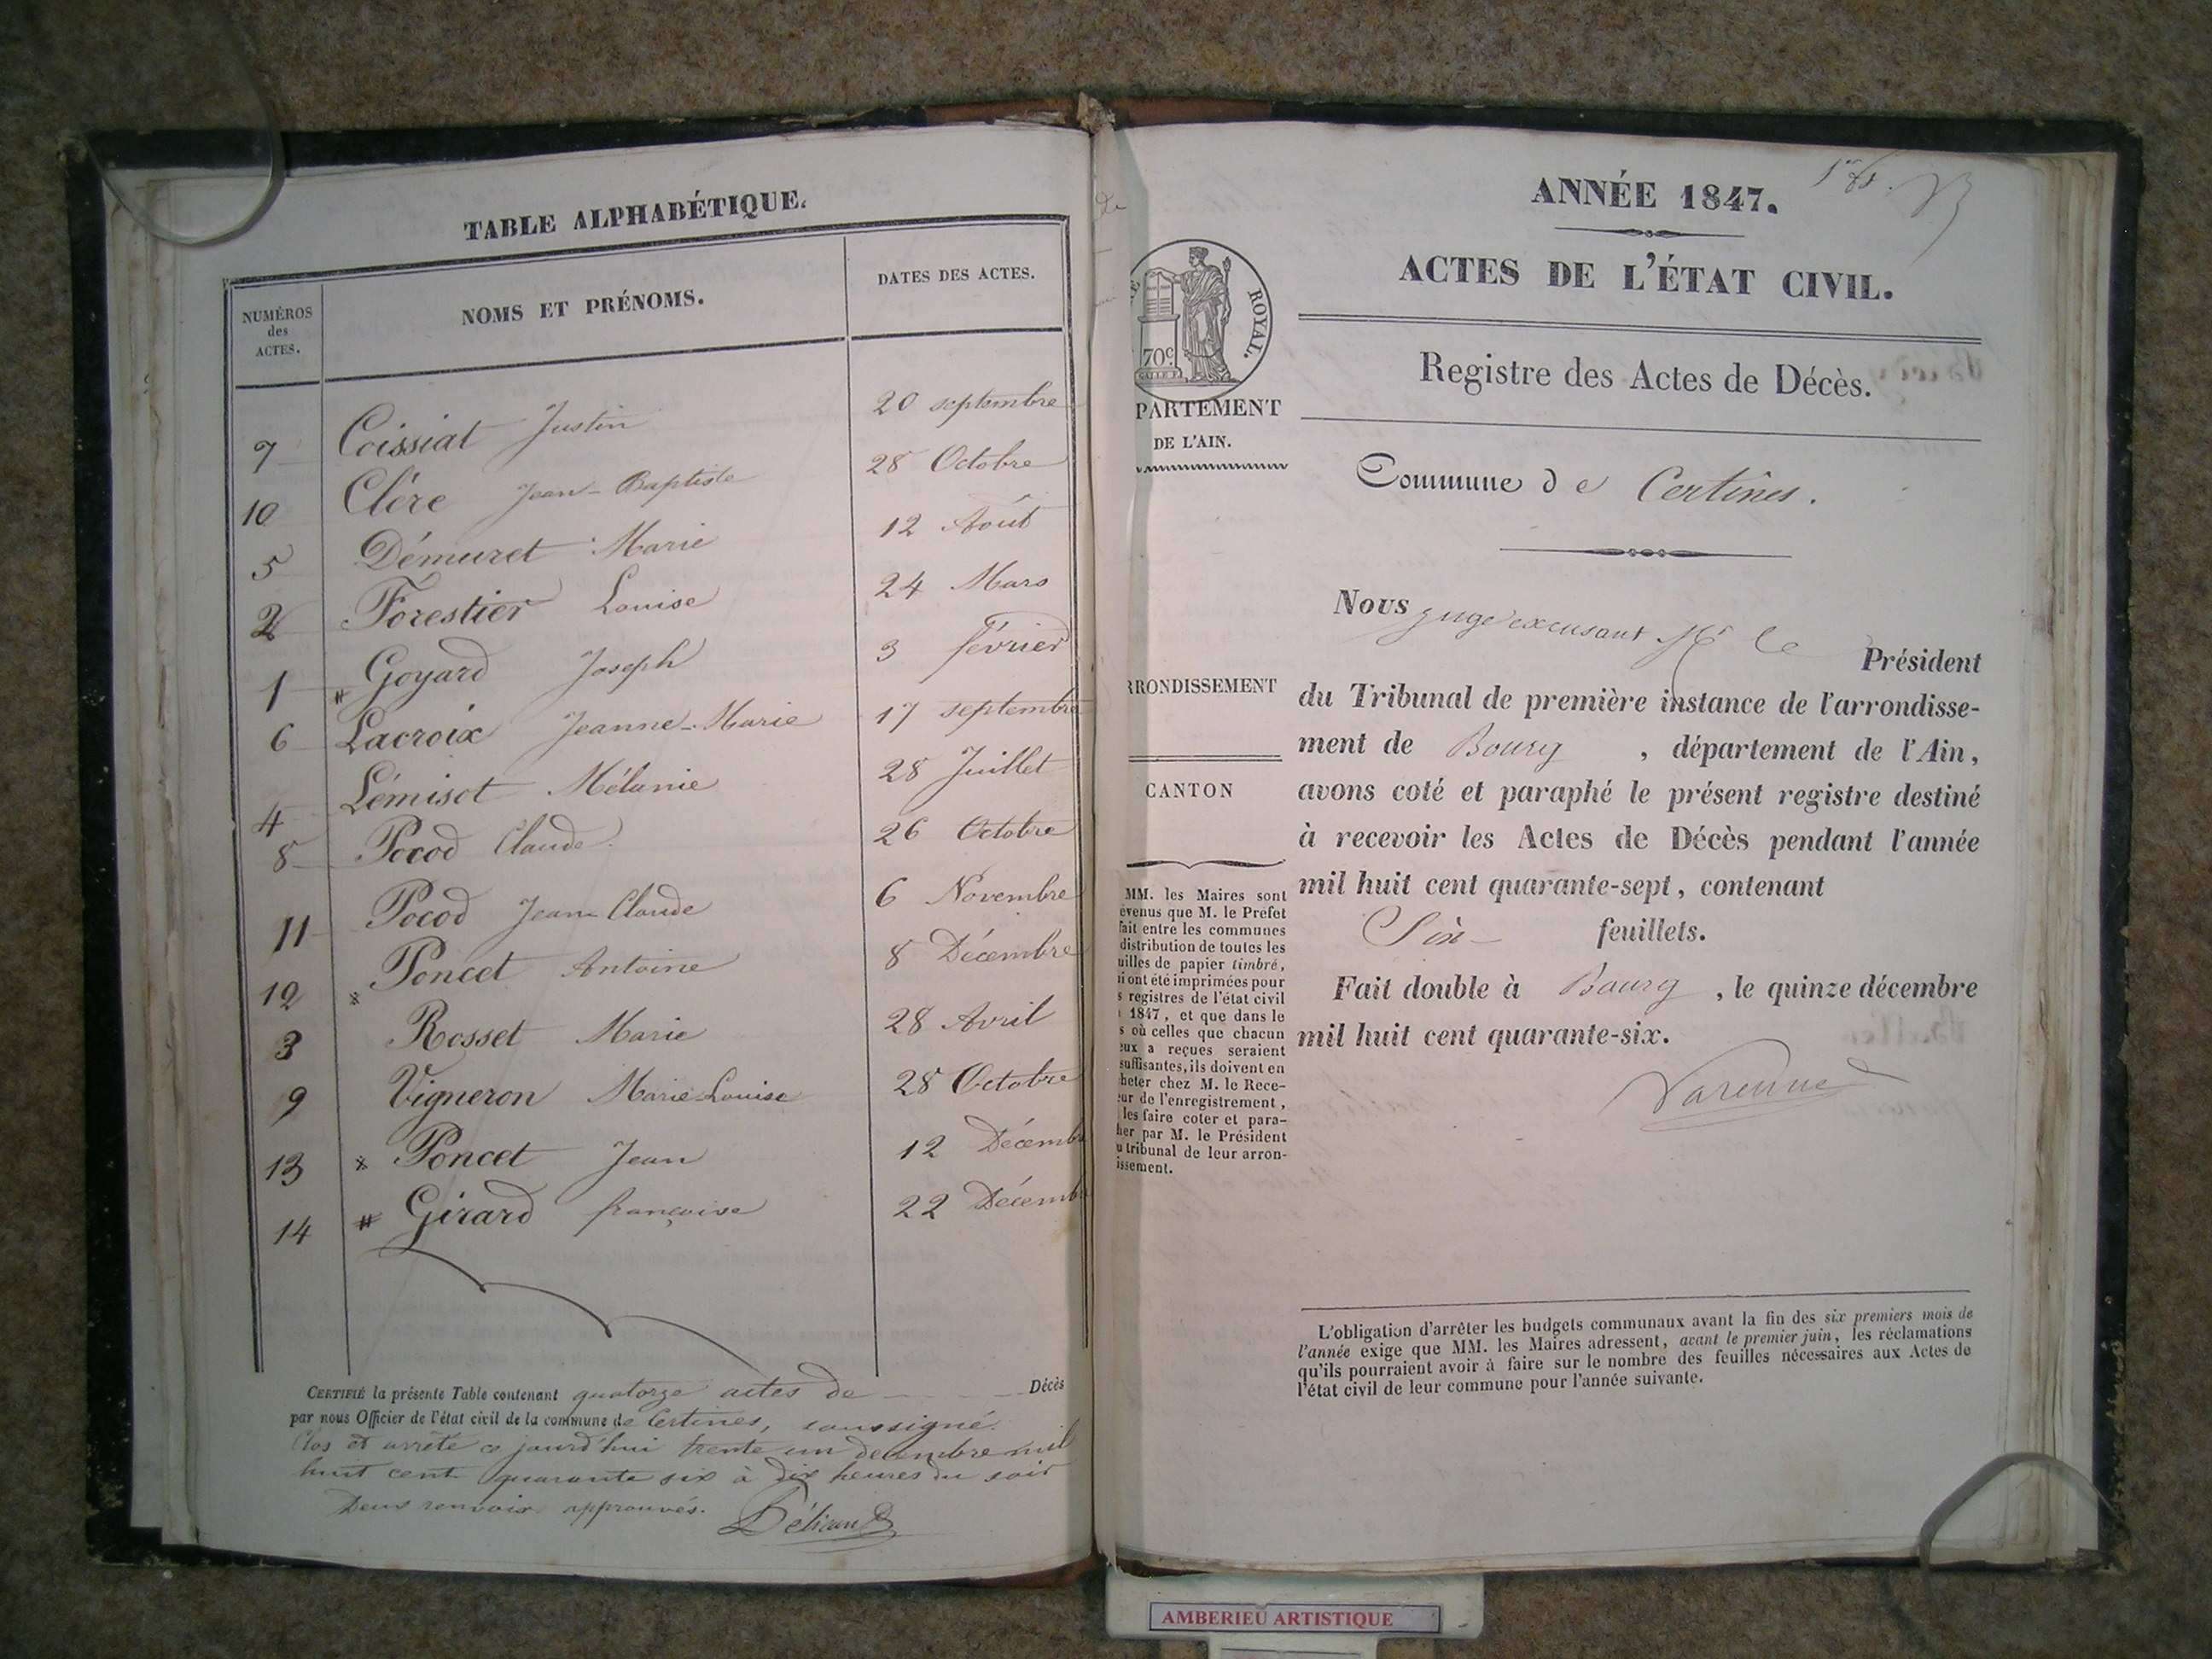 TABLE ALPHABÉTIQUE.
NUMÉROS des ACTES.
NOMS ET PRÉNOMS.
DATES DES ACTES.
7 Coissiat Justin 20 septembre
10 Clére Jean-Baptiste 28 Octobre
5 Démuret Marie 12 Août
2 Forestier Louise 24 Mars
1 # Goyard Joseph 3 février
6 Lacroix Jeanne-Marie 17 septembre
4 Lémisot Mélanie 28 Juillet
8 Pocod Claude 26 Octobre
11 Pocod Jean Claude 6 Novembre
12 Poncet Antoine 8 Décembre
3 Rosset Marie 28 Avril
9 Vigneron Marie Louise 28 Octobre
13 Poncet Jean 12 Décemb
14 # Girard françoise 22 Décemb
CERTIFIÉ la présente Table contenant quatorze actes de Décès
par nous Officier de l'état civil de la commune de Certines, soussigné.
Clos et arrêté ce jourd'hui trente un décembre mil
huit cent quarante six à dix heures du soir
Deux renvois approuvés.
ROYAL.
70c
PARTEMENT
DE L'AIN.
RRONDISSEMENT
CANTON
MM. les Maires sont
évenus que M. le Préfet
fait entre les communes
distribution de toutes les
uilles de papier timbré,
i ont été imprimées pour
s registres de l'état civil
1847, et que dans le
s où celles que chacun
eux a reçues seraient
suffisantes, ils doivent en
heter chez M. le Rece-
eur de l'enregistrement,
les faire coter et para-
her par M. le Président
u tribunal de leur arron-
issement.
ANNÉE 1847.
ACTES DE L'ÉTAT CIVIL.
Registre des Actes de Décès.
Commune de Certines.
Nous juge excusant Mr le Président
du Tribunal de première instance de l'arrondisse-
ment de Bourg, département de l'Ain,
avons coté et paraphé le présent registre destiné
à recevoir les Actes de Décès pendant l'année
mil huit cent quarante-sept, contenant
Six feuillets.
Fait double à Bourg, le quinze décembre
mil huit cent quarante-six.
Varenne
L'obligation d'arrêter les budgets communaux avant la fin des six premiers mois de
l'année exige que MM. les Maires adressent, avant le premier juin, les réclamations
qu'ils pourraient avoir à faire sur le nombre des feuilles nécessaires aux Actes de
l'état civil de leur commune pour l'année suivante.
AMBERIEU ARTISTIQUE